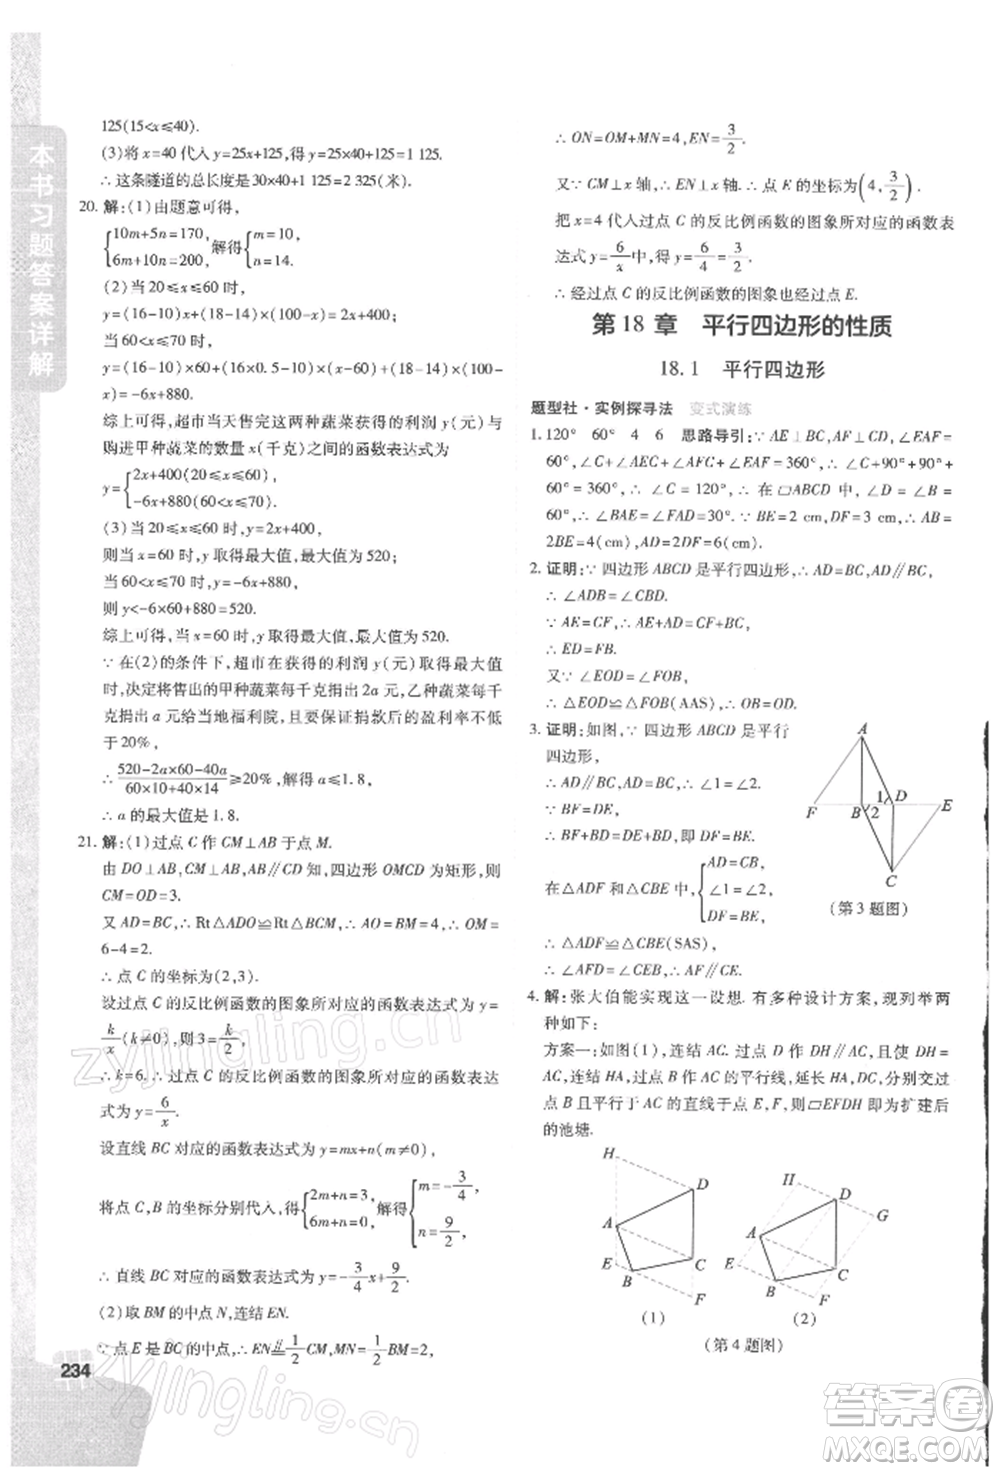 本书习题答案详解
125(15<x≤40).
(3)将 x=40 代入 y=25x+125,得 y=1 125.
∴ 这条隧道的总长度是 30×40+1 125=2 325(米).
20. 解:(1)由题意可得,
{10m+5n=170, 解得 {m=10,
6m+10n=220, n=14.
(2)当 20≤x≤60 时,
y=(16-10)x+(18-14)(100-x)=2x+400;
当 60<x≤70 时,
y=(16-10)×60+(16×0.5-10)×(x-60)+
(18-14)×(100-x)=-6x+880.
综上可得,超市当天售完这两种蔬菜的利润 y(元)与
购进甲种蔬菜的数量 x(千克)之间的函数表达式为
y={2x+400(20≤x≤60),
-6x+880(60<x≤70).
(3)当 20≤x≤60 时,y=2x+400,
则当 x=60 时,y 取得最大值,最大值为 520;
当 60<x≤70 时,y=-6x+880,
则 y<-6×60+880=520.
综上可得,当 x=60 时,y 取得最大值,最大值为 520.
∵ 在(2)的条件下,超市在获得的利润 y(元)取得最大值
时,决定将售出的甲种蔬菜每千克捐出 2a 元,乙种蔬菜每千
克捐出 a 元给当地福利院,且要保证捐款后的盈利率不低
于 20%,
∴ (520-2a×60-40a)/(60×10+40×14)≥20%,解得 a≤1.8,
∴ a 的最大值为 1.8.
21. 解:(1)过点 C 作 CM⊥AB 于点 M.
由 DO⊥AB,CM⊥AB,AB∥CD,知四边形 OMCD 为矩形,则
CM=OD=3.
又 AD=BC,∴ Rt△ADO≌Rt△BCM,∴ AO=BM=4,∴ OM=
6-4=2.
∴ 点 C 的坐标为(2,3).
设过点 C 的反比例函数的图象所对应的函数表达式为 y=
k/x(k≠0),则 3=k/2,
∴ k=6.∴ 过点 C 的反比例函数的图象所对应的函数表达
式为 y=6/x.
设直线 BC 对应的函数表达式为 y=mx+n(m≠0),
将点 C,B 的坐标分别代入,得{2m+n=3, 解得{m=-3/4,
6m+n=0, n=9/2,
∴ 直线 BC 对应的函数表达式为 y=-3/4x+9/2.
(2)取 BM 的中点 N,连结 EN.
∵ 点 E 是 BC 的中点,∴ EN∥1/2CM,EN=1/2CM=3/2,
234
∴ ON=OM+MN=4,EN=3/2.
又∵ CM⊥x 轴,∴ EN⊥x 轴.∴ 点 E 的坐标为(4,3/2).
把 x=4 代入过点 C 的反比例函数的图象所对应的函数表
达式 y=6/x中,得 y=6/4=3/2,
∴ 经过点 C 的反比例函数的图象也经过点 E.
第 18 章 平行四边形的性质
18.1 平行四边形
题型社·实例探寻法 变式演练
1. 120° 60° 4 6 思路导引:∵ AE⊥BC,AF⊥CD,∠EAF=
60°,∠C+∠AEC+∠AFC+∠EAF=360°,∴ ∠C+90°+90°+
60°=360°,∴ ∠C=120°,∴ 在▱ABCD 中,∠D=∠B=
60°.∴ ∠BAE=∠FAD=30°.∵ BE=2 cm,DF=3 cm,∴ AB=
2BE=4(cm),AD=2DF=6(cm).
2. 证明:∵ 四边形 ABCD 是平行四边形,∴ AD=BC,AD∥BC,
∴ ∠ADB=∠CBD.
∵ AE=CF,∴ AD-AE=BC-CF,
∴ ED=FB.
又∵ ∠EOD=∠FOB,
∴ △EOD≌△FOB(AAS),∴ OB=OD.
3. 证明:如图,∵ 四边形 ABCD 是平行
四边形,
∴ AD∥BC,AD=BC,∴ ∠1=∠2.
∵ BF=DE,
∴ BF+BD=DE+BD,即 DF=BE.
在△ADF 和△CBE 中,{AD=CB,
∠1=∠2,
DF=BE,
∴ △ADF≌△CBE(SAS),
∴ ∠AFD=∠CEB,∴ AF∥CE.
A
F B 1 2 D E
C
(第 3 题图)
4. 解:张大伯能实现这一设想. 有多种设计方案,现列举两
种如下:
方案一:如图(1),连结 AC. 过点 D 作 DH∥AC,且使 DH=
AC,连结 HA,过点 B 作 AC 的平行线,延长 HA,DC,分别交过
点 B 且平行于 AC 的直线于点 E,F,则▱EFDH 即为扩建后
的池塘.
H D A E B C F
(1)
H D G A E B C F
(2)
(第 4 题图)
zyjingling.cn
zyjingling.cn
答案圈
MXQE.COM